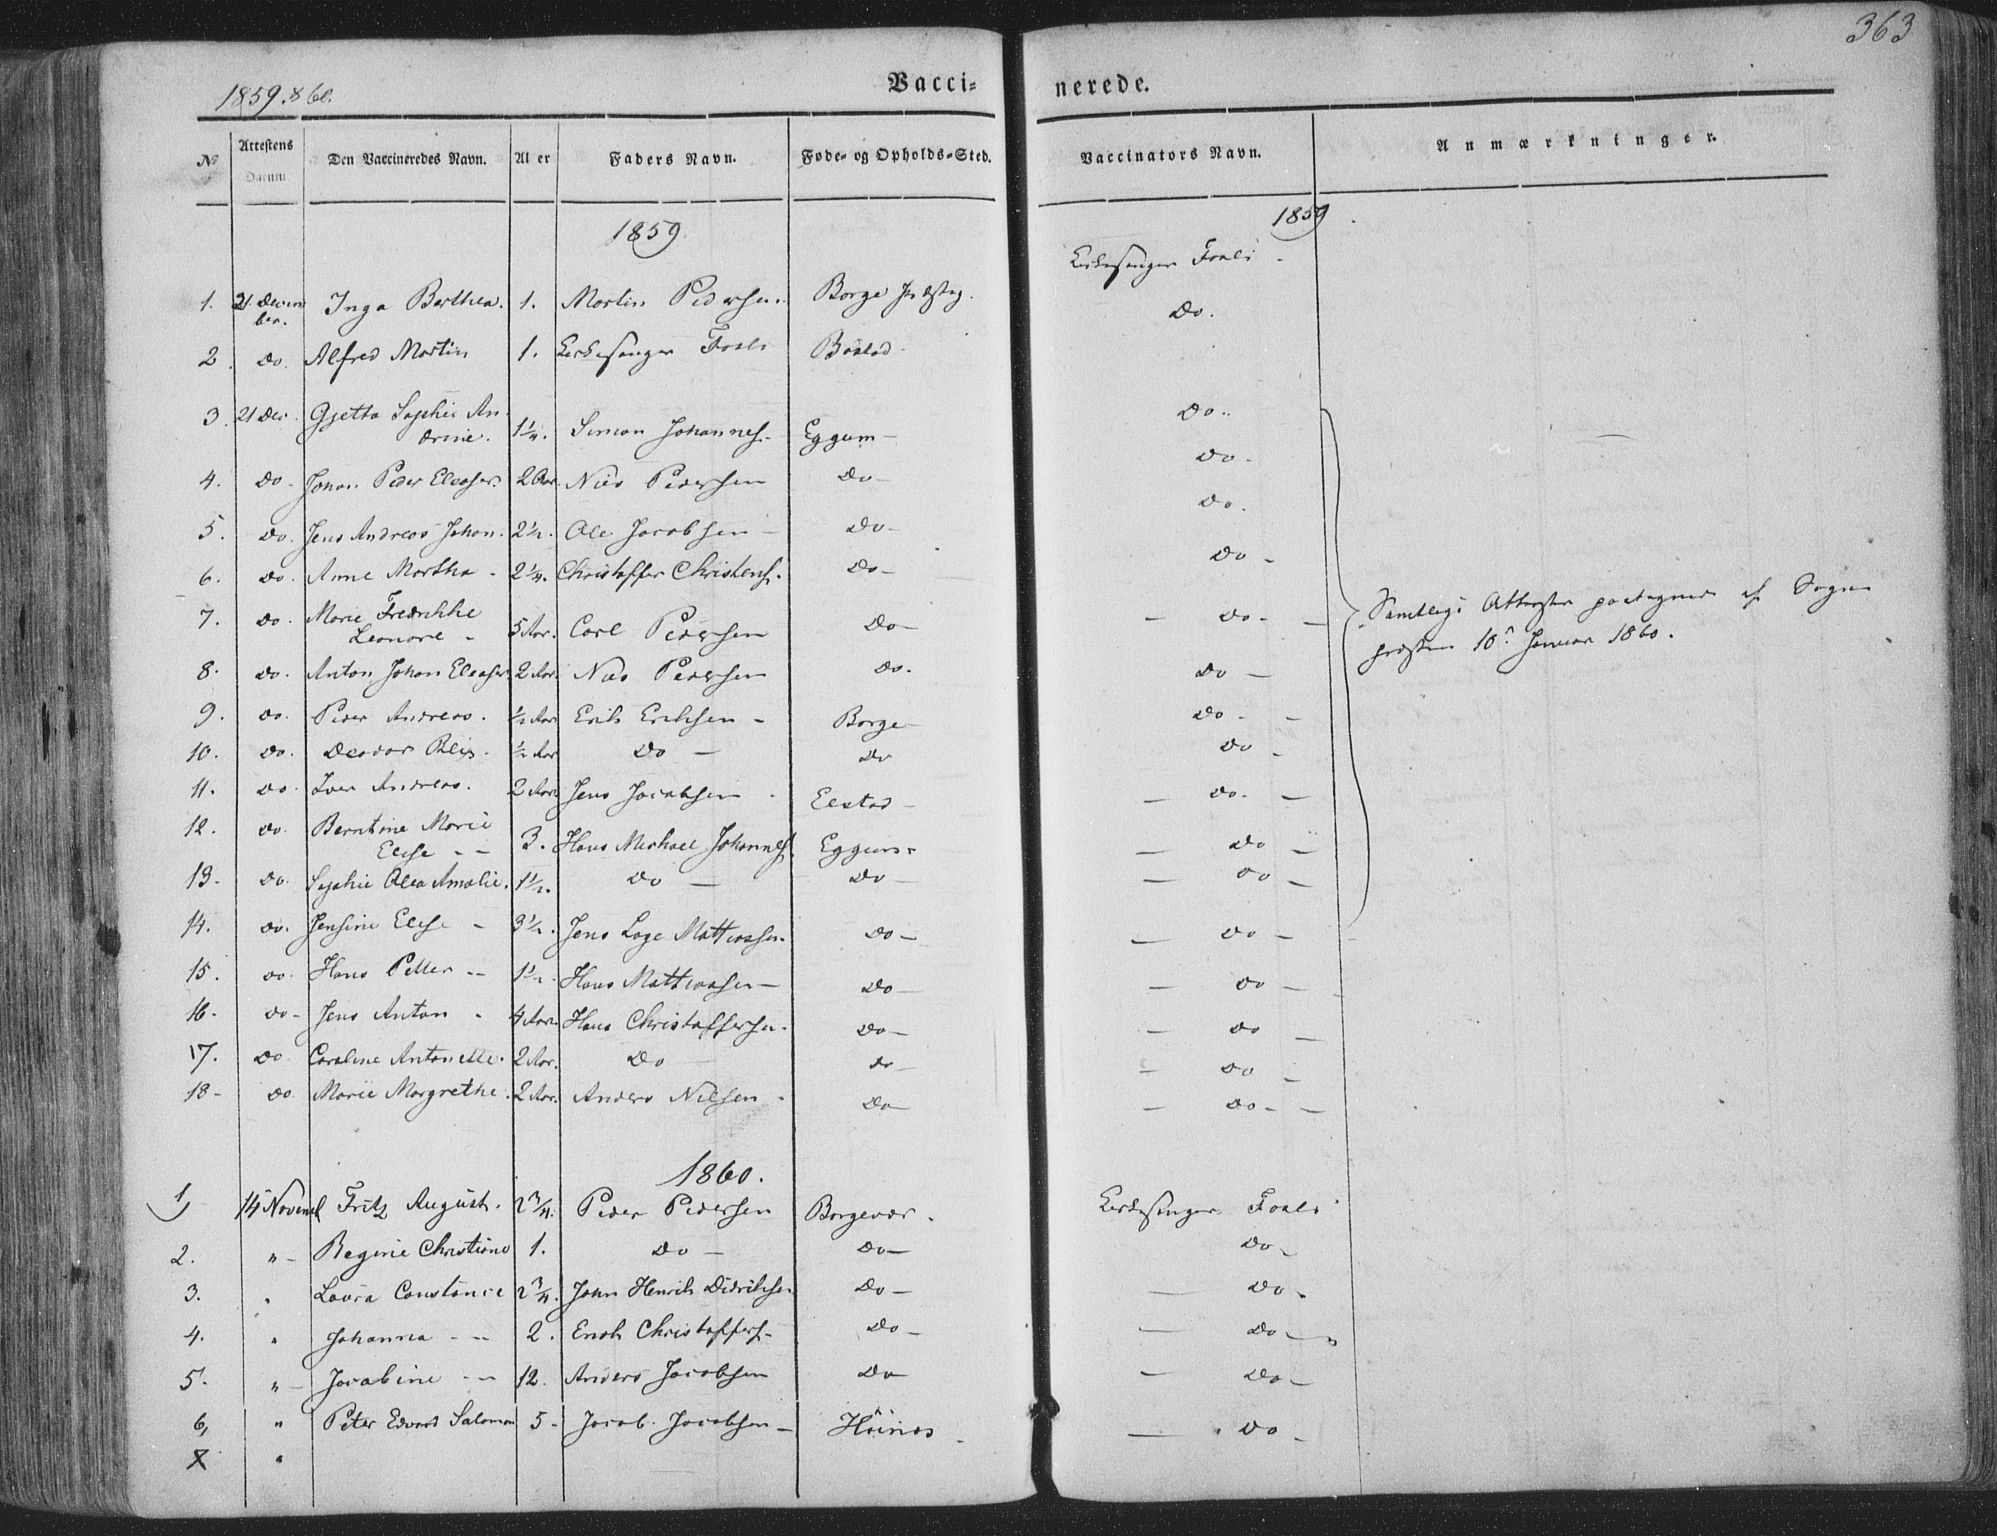 363
1859. & 60.
Vacci- nerede.
No Attestens Datum. Den Vaccineredes Navn. Al er Faders Navn. Føde- og Opholds-Sted. Vaccinators Navn. Anmærkninger.
1859. 1859
1. 21 Decem ber. Inga Berthea. 1. Martin Pedersen. Borge Kirkesanger Foslie
2. Do. Alfred Martin 1. Kirkesanger Foslie Bøstad Do.
3. 21 Dec. Gjetta Sophie An
drine. 1 1/4. Simon Johannes. Eggum Do.
4. Do Johan Peder Eleaser. 2 Aar. Nils Pedersen Do Do.
5. Do. Jens Andreas Johan. 2 1/2. Ole Jacobsen Do Do.
6. Do. Anne Martha 2 1/4. Christoffer Christens. Do Do
7. Do. Marie Fredrikke
Leonore 5 Aar. Carl Pedersen Do Do
8. Do. Anton Johan Eleaser 2 Aar. Nils Pedersen Do. Do
9. Do. Peder Andreas. 1/2 Aar Erik Eriksen Borge Do
10. Do. 1/2 Aar Do Do Do
11. Do. Iver Andreas. 2 Aar Jens Jacobsen Do.
12. Do. Berntine Marie
Elise 3. Hans Michael Johannes. Eggum Do
13. Do. Sophie Olea Amalie. 1 1/2. Do Do Do
14. Do. Jensine Elise 3 1/2. Jens Lage Mathiasen. Do Do
15. Do. Hans Petter 1 1/2. Hans Mathiasen Do Do
16. Do Jens Anton 4 Aar. Hans Christoffersen. Do Do
17. Do Caroline Antonette. 2 Aar. Do Do Do
18 Do. Marie Margrethe. 2 Aar. Anders Nilsen Do Do
Samtlige Attester paategnede af Sogne
præsten 10. Januar 1860.
1860.
1, 14 Novemb Fritz August. 2 3/4. Peder Pedersen Borgevær. Kirkesanger Foslie
2. " Regine Christiane 1. Do Do Do
3. " Laura Constance 2 3/4. John Henrik Didriksen Do Do
4. " Johanna 2. Enok Christoffers. Do Do
5. " Jacobine 12. Anders Jacobsen Do Do
6, " Peter Edvard Salomon 5 Jacob Jacobsen Høinæs Do
X "